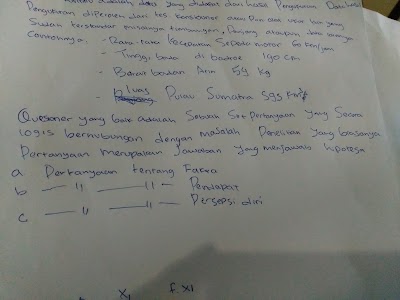 adalah data yang didapat dari hasil Pengukuran Data hasil
Pengukuran diperoleh dari tes, kuesioner atau dan alat ukur lain yang
Sudah terstandar misalnya timbangan, Panjang ataupun data
Contohnya: - Rata-rata kecepatan Sepeda motor 60 km/jam
- Tinggi badan di badroe 190 cm
- Berat badan Arin 54 kg
- luas Pulau Sumatra 595 km²
Quesoner yang baik adalah Sebuah Set pertanyaan yang Secara
logis berhubungan dengan masalah Penelitian yang biasanya
Pertanyaan merupakan Jawaban yang menjawab hipotesa
a Pertanyaan tentang Fakta
b — " — " — Pendapat
c — " — " — Persepsi diri
X₁ F X₁